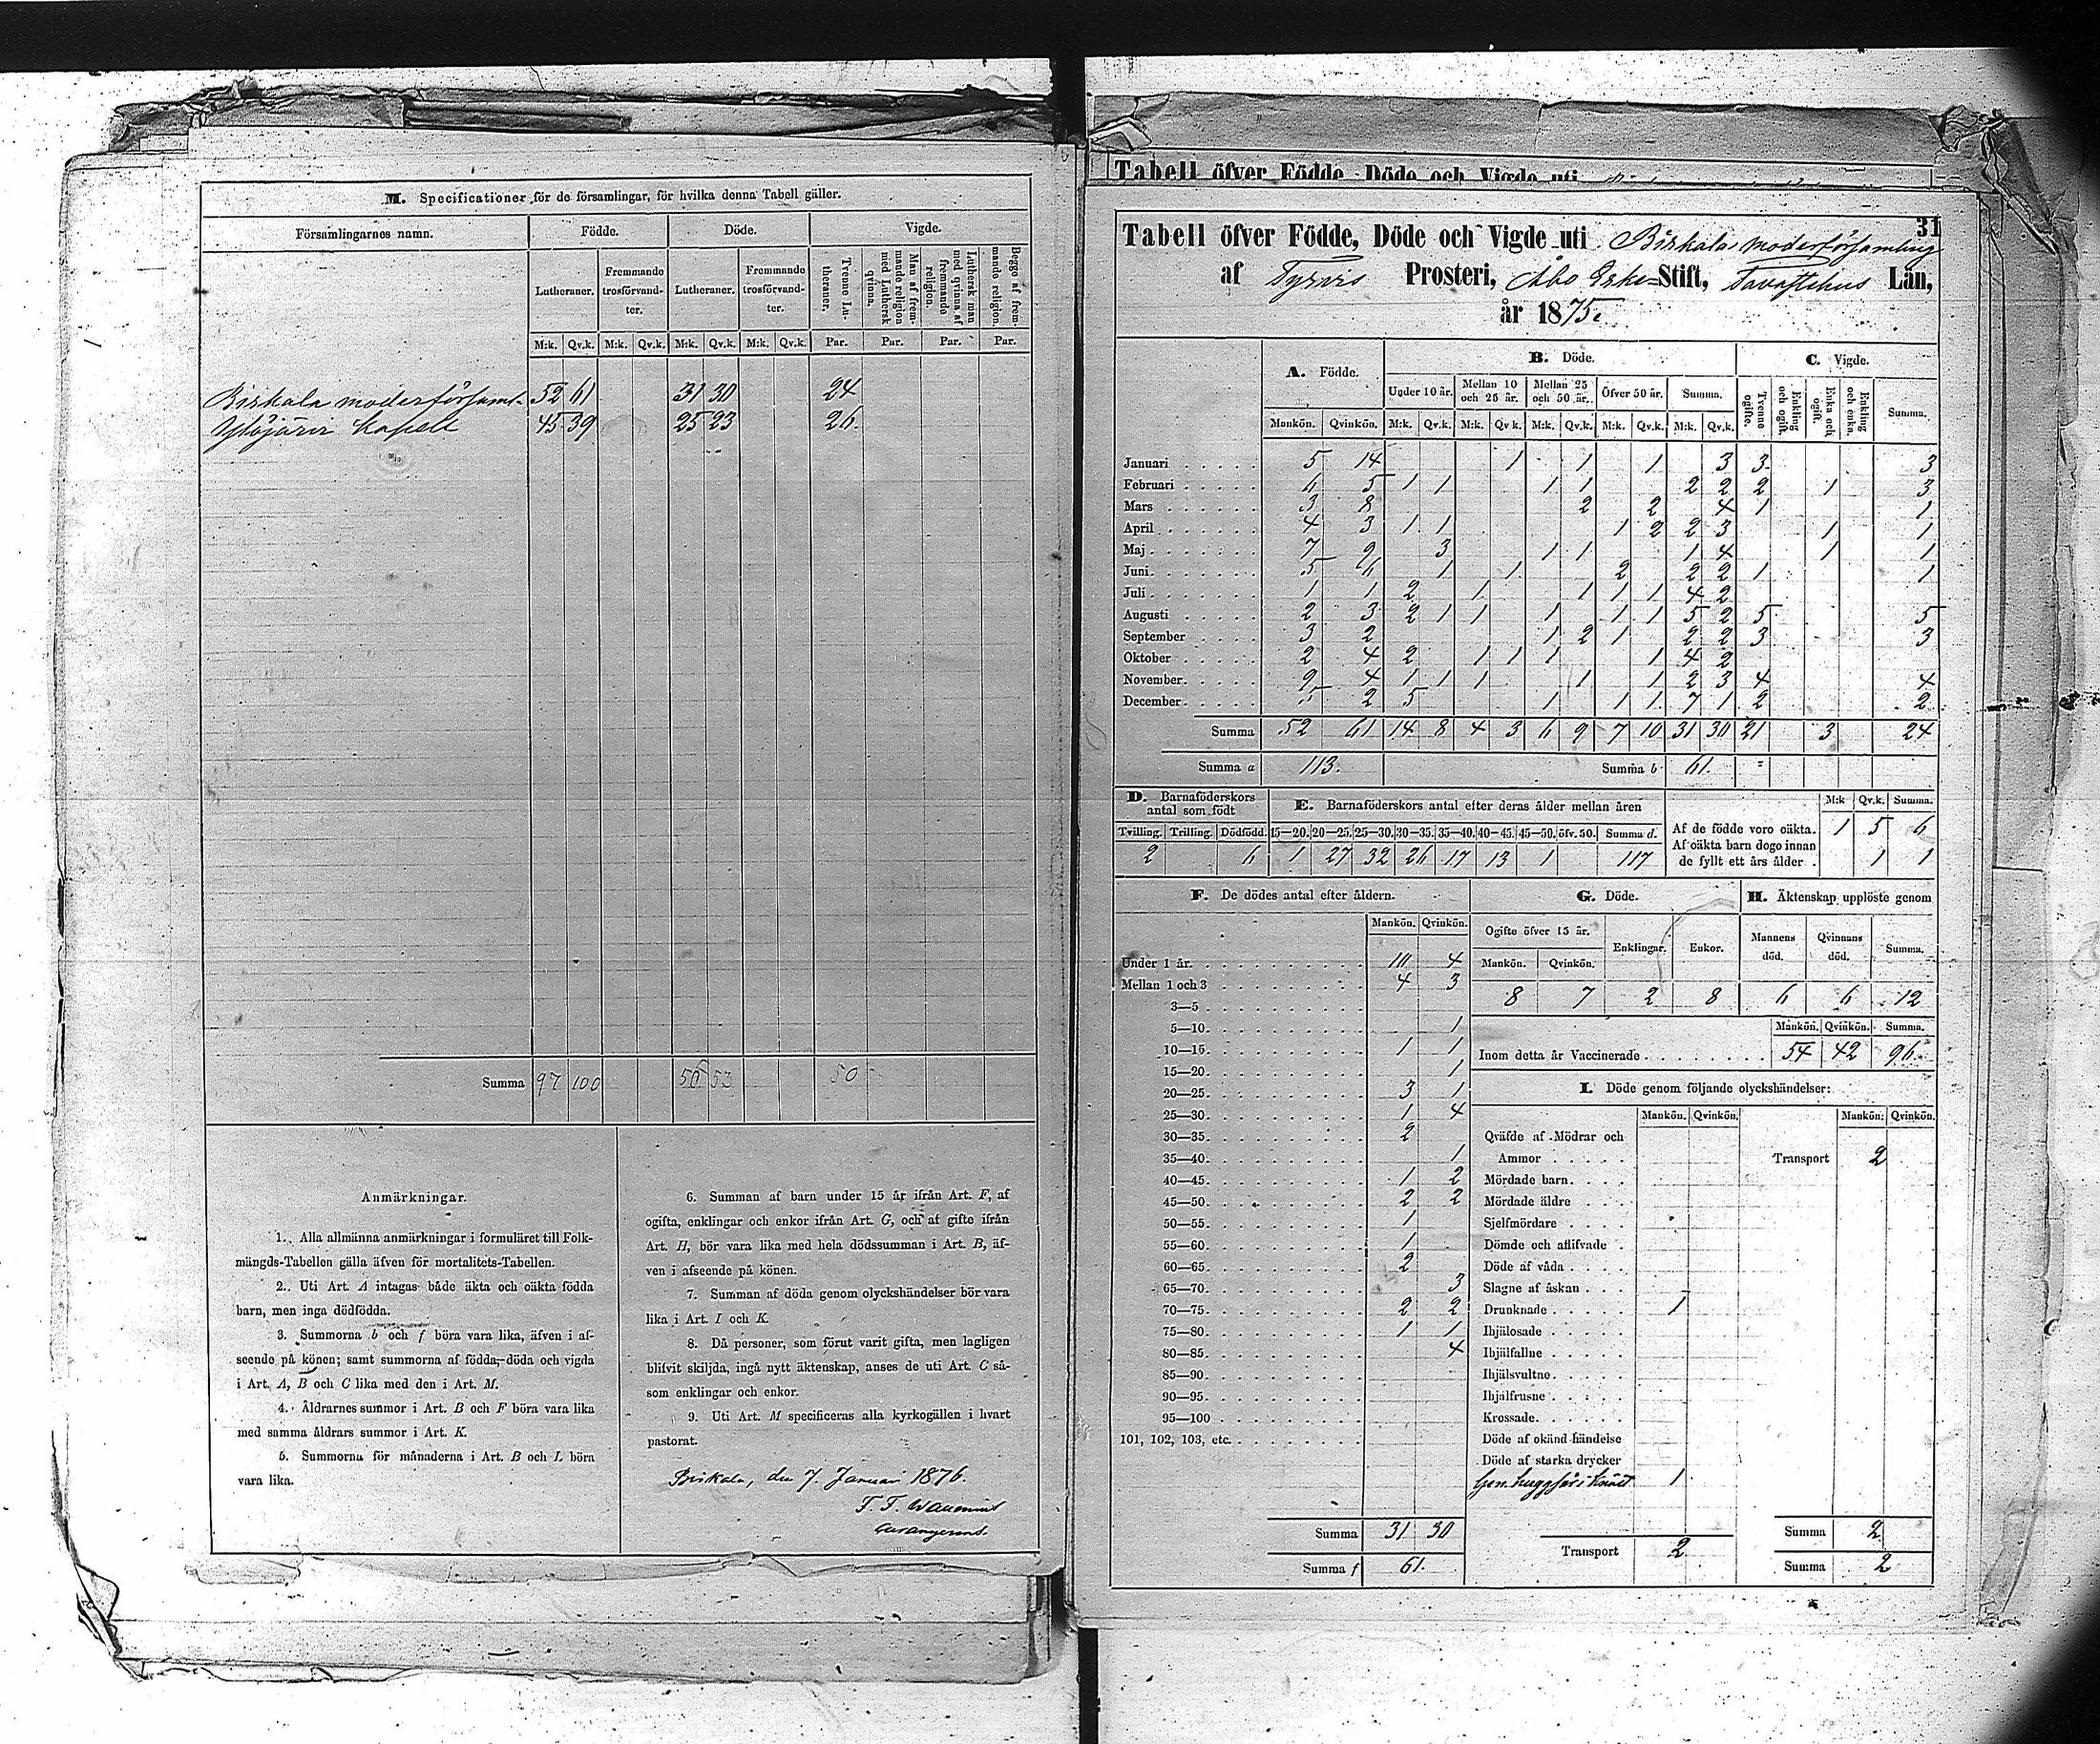 M. Specificationer för de församlingar, för hvilka denna Tabell gäller.
Församlingarnes namn. Födde. Döde. Vigde.
Lutheraner. Fremmande trosförvandter. Lutheraner. Fremmande trosförvandter. Tvenne Lutheraner. Man af fremmande religion med Luthersk qvinna. Luthersk man med qvinna af fremmande religion. Begge af fremmande religion.
M:k. Qv.k. M:k. Qv.k. M:k. Qv.k. M:k. Qv.k. Par. Par. Par. Par.
Birkala moderförsaml. 52 61 31 30 24
Ylöjärvi Kapell 45 39 25 23 26.
Summa 97 100 56 53 50
Anmärkningar.
1. Alla allmänna anmärkningar i formuläret till Folk-
mängds-Tabellen gälla äfven för mortalitets-Tabellen.
2. Uti Art. A intagas både äkta och oäkta födda
barn, men inga dödfödda.
3. Summorna b och f böra vara lika, äfven i af-
seende på könen; samt summorna af födda, döda och vigda
i Art. A, B och C lika med den i Art. M.
4. Åldrarnes summor i Art. B och F böra vara lika
med samma åldrars summor i Art. K.
5. Summorna för månaderna i Art. B och L böra
vara lika.
6. Summan af barn under 15 år ifrån Art. F, af
ogifta, enklingar och enkor ifrån Art. G, och af gifte ifrån
Art. H, bör vara lika med hela dödssumman i Art. B, äf-
ven i afseende på könen.
7. Summan af döda genom olyckshändelser bör vara
lika i Art. I och K.
8. Då personer, som förut varit gifta, men lagligen
blifvit skiljda, ingå nytt äktenskap, anses de uti Art. C så-
som enklingar och enkor.
9. Uti Art. M specificeras alla kyrkogällen i hvart
pastorat.
Birkala, den 7. Januari 1876.
Tabell öfver Födde, Döde och Vigde uti
31
Tabell öfver Födde, Döde och Vigde uti Birkala moderförsamling
af Tyrvis Prosteri, Åbo Erke-Stift, Tavastehus Län,
år 1875.
A. Födde. B. Döde. C. Vigde.
Under 10 år. Mellan 10 och 25 år. Mellan 25 och 50 år. Öfver 50 år. Summa. Tvenne ogifte. Enkling och ogift. Enka och ogift. Enkling och enka. Summa.
Mankön. Qvinkön. M:k. Qv.k. M:k. Qv.k. M:k. Qv.k. M:k. Qv.k. M:k. Qv.k.
Januari 5 14 1 1 1 3 3 3
Februari 6 5 1 1 1 1 2 2 2 1 3
Mars 3 8 2 2 4 1 1
April 4 3 1 1 1 2 2 3 1 1
Maj 7 9 3 1 1 1 4 1 1
Juni 5 6 1 1 2 2 2 1 1
Juli 1 1 2 1 1 1 1 4 2
Augusti 2 3 2 1 1 1 1 1 5 2 5 5
September 3 2 1 2 1 2 2 3 3
Oktober 2 4 2 1 1 1 1 4 2
November 9 4 1 1 1 1 1 2 3 4 4
December 5 2 5 1 1 1 7 1 2 2
Summa 52 61 14 8 4 3 6 9 7 10 31 30 21 3 24
Summa a 113. Summa b 61.
D. Barnaföderskors antal som födt
E. Barnaföderskors antal efter deras ålder mellan åren
M:k Qv.k. Summa.
Tvilling. Trilling. Dödfödd. 15—20. 20—25. 25—30. 30—35. 35—40. 40—45. 45—50. öfv. 50. Summa d.
2 6 1 27 32 26 17 13 1 117
Af de födde voro oäkta. 1 5 6
Af oäkta barn dogo innan
de fyllt ett års ålder 1 1
F. De dödes antal efter åldern.
Mankön. Qvinkön.
Under 1 år. 10 4
Mellan 1 och 3 4 3
3—5
5—10. 1
10—15. 1 1
15—20. 1
20—25. 3 1
25—30. 1 4
30—35. 2
35—40. 1
40—45. 1 2
45—50. 2 2
50—55. 1
55—60 1
60—65. 2
65—70. 3
70—75. 2 2
75—80. 1 1
80—85. 4
85—90.
90—95.
95—100
101, 102, 103, etc.
Summa 31 30
Summa f 61.
G. Döde. H. Äktenskap upplöste genom
Ogifte öfver 15 år. Enklingar. Enkor. Mannens död. Qvinnans död. Summa.
Mankön. Qvinkön.
8 7 2 8 6 6 12
Mankön. Qvinkön. Summa.
Inom detta år Vaccinerade 54 42 96.
I. Döde genom följande olyckshändelser:
Mankön. Qvinkön. Mankön. Qvinkön.
Qväfde af Mödrar och
Ammor
Transport 2
Mördade barn
Mördade äldre
Sjelfmördare
Dömde och aflifvade
Döde af våda
Slagne af åskan
Drunknade 1
Ihjälosade
Ihjälfallne
Ihjälsvultne
Ihjälfrusne
Krossade
Döde af okänd händelse
Döde af starka drycker
Gen. huggsår i knäet 1
Transport 2
Summa 2
Summa 2